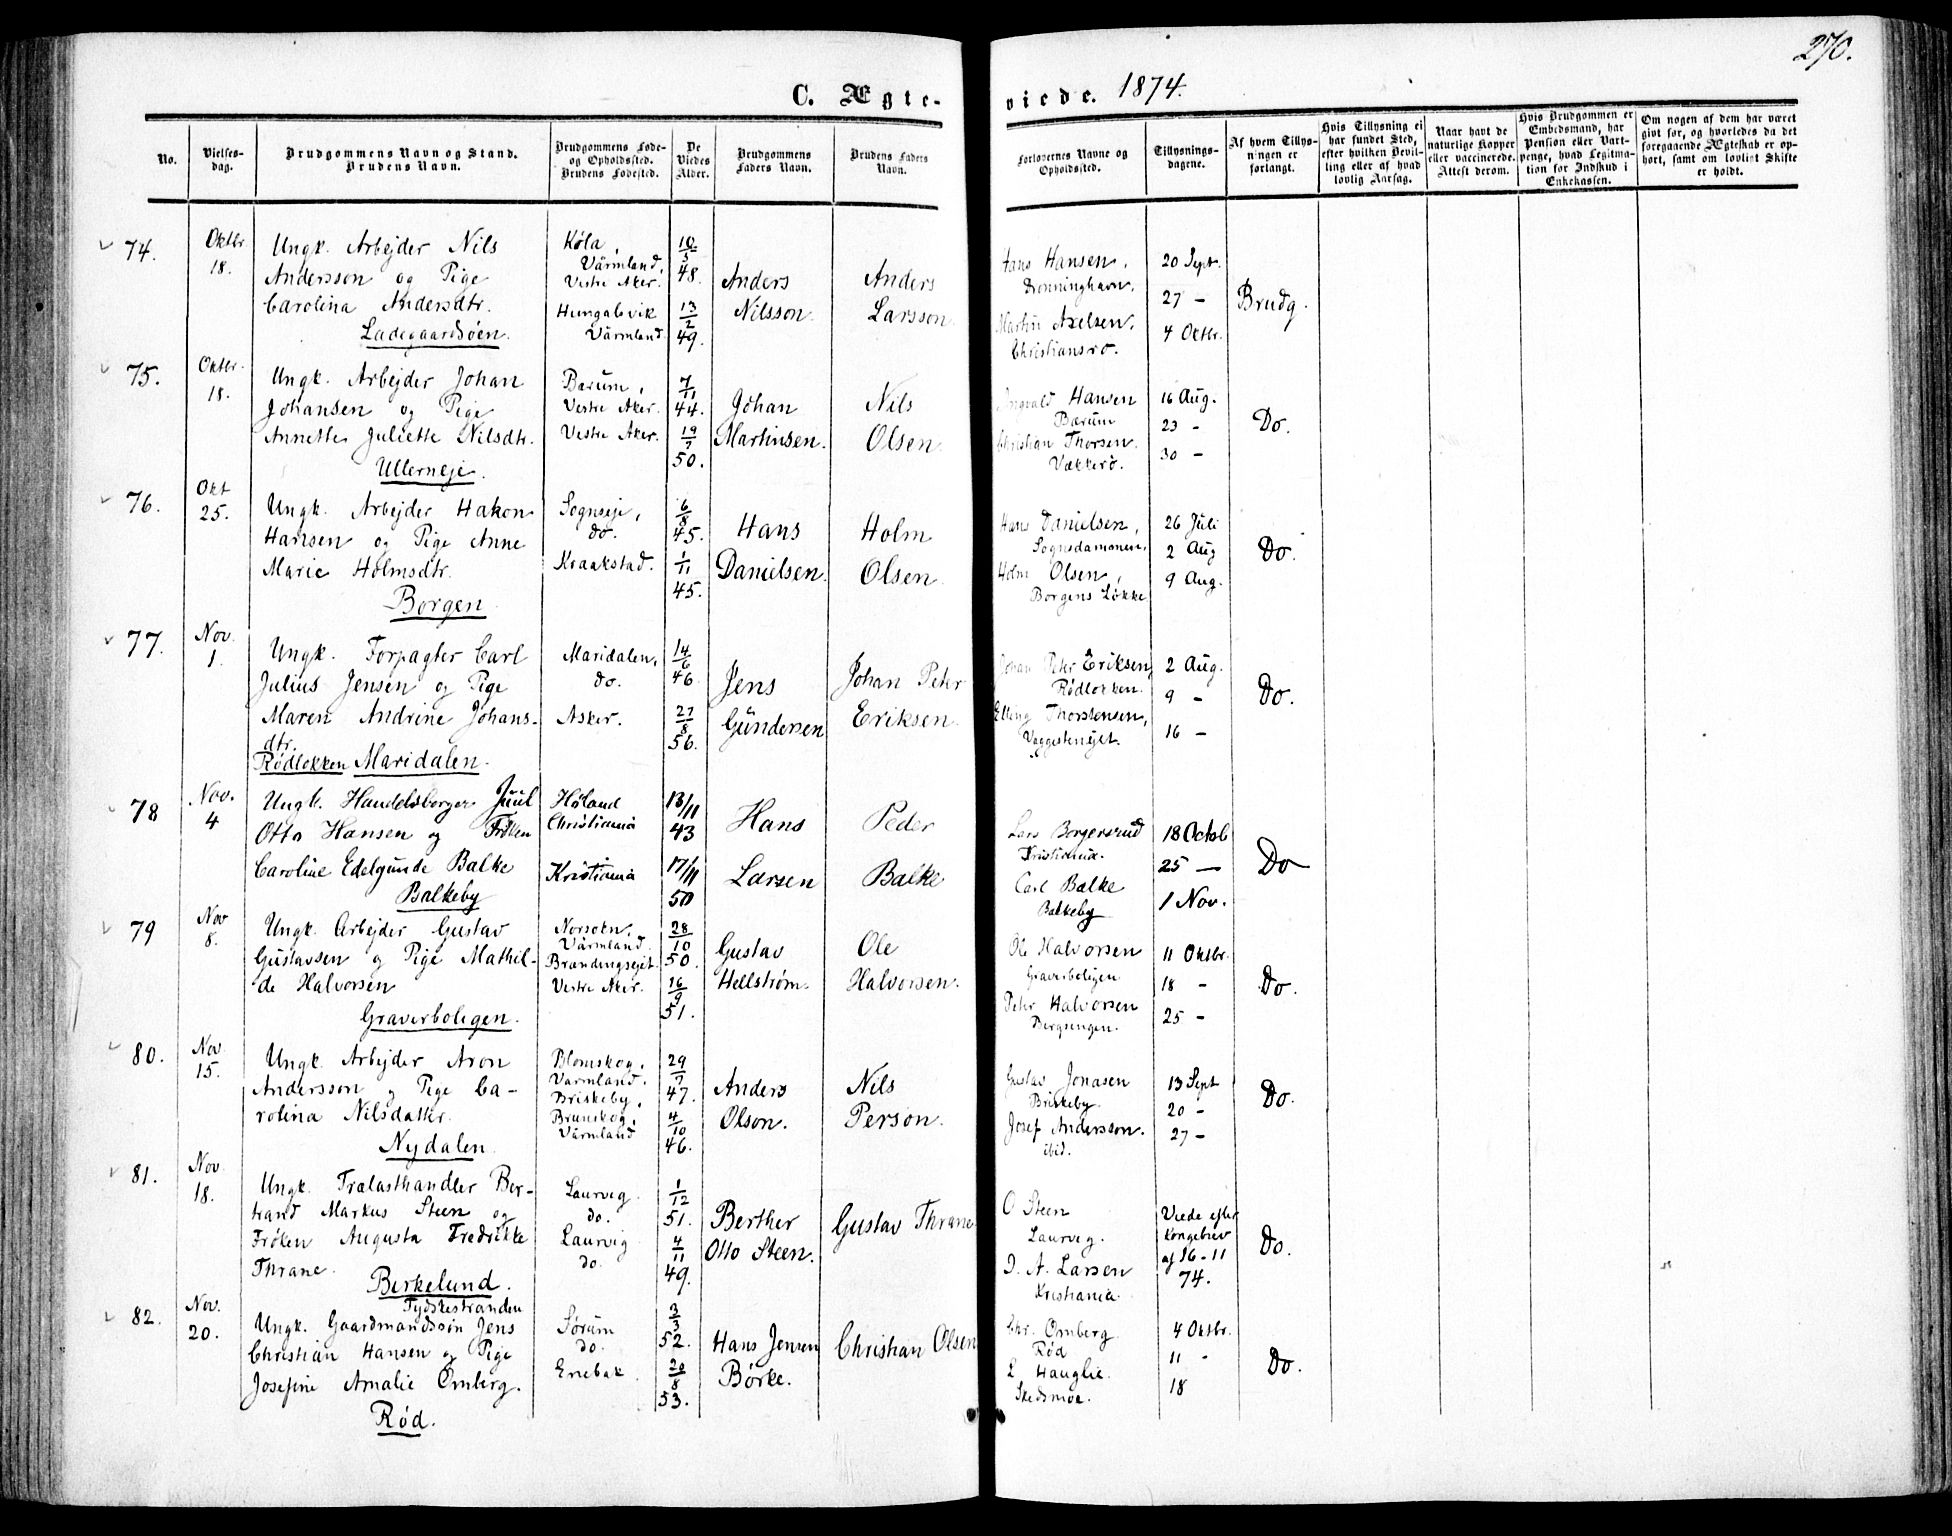 270.
C. Ægte-
viede. 1874.
No.
Vielses-
dag.
Brudgommens Navn og Stand.
Brudens Navn.
Brudgommens Føde-
og Opholdssted.
Brudens Fødested.
De
Viedes
Alder.
Brudgommens
Faders Navn.
Brudens Faders
Navn.
Forlovernes Navne og
Opholdssted.
Tillysnings-
dagene.
Af hvem Tillys-
ningen er
forlangt.
Hvis Tillysning ei
har fundet Sted,
efter hvilken Bevil-
ling eller af hvad
lovlig Aarsag.
Naar havt de
naturlige Kopper
eller vaccinerede.
Attest derom.
Hvis Brudgommen er
Embedsmand, har
Pension eller Vart-
penge, hvad Legitima-
tion for Indskud i
Enkekassen.
Om nogen af dem har været
gift før, og hvorledes da det
foregaaende Ægteskab er op-
hørt, samt om lovligt Skifte
er holdt.
74.
Oktbr
18.
Ungk. Arbejder Nils
Andersson og Pige
Carolina Andersdtr.
Ladegaardsøen.
Køla,
Värmland,
Vestre Aker.
Hungalsvik
Värmland
10/5
48.
13/2
49.
Anders
Nilsson.
Anders
Larsson.
Hans Hansen,
Dronninghavn.
Martin Axelsen,
Christiansro.
20 Sept.
27 -
4 Oktbr.
Brudg.
75.
Oktbr.
18.
Ungk. Arbejder Johan
Johansen og Pige
Annette Juliette Nilsdtr.
Ullerneje.
Barum,
Vestre Aker.
Vestre Aker.
7/11
44.
19/7
50.
Johan
Martinsen.
Nils
Olsen
Ingvald Hansen
Bærum
Christian Thorsen.
Vækkerø.
16 Aug.
23 -
30 -
Do.
76.
Okt
25.
Ungk. Arbejder Hakon
Hansen og Pige Anne
Marie Holmsdtr.
Borgen
Sognseje,
do.
Kraakstad.
6/8
45.
1/11
45.
Hans
Danielsen.
Holm
Olsen
Hans Danielsen,
Sognsdammen,
Holm Olsen,
Borgens Løkke
26 Juli
2 Aug
9 Aug.
Do.
77.
Nov.
1.
Ungk. Forpagter Carl
Julius Jensen og Pige
Maren Andrine Johans-
dtr.
Rødløkken Maridalen.
Maridalen,
do.
Asker.
14/6
46
27/8
56.
Jens
Gundersen
Johan Peter
Eriksen.
Johan Peter Eriksen,
Rødløkken.
Elling Thorstensen,
Vaggestenejet.
2 Aug.
9 -
16 -
Do.
78
Nov.
4
Ungk. Handelsborger Juul
Otto Hansen og Frøken
Caroline Edelgunde Balke
Balkeby
Høland
Christiania
Kristiania
13/11
43
17/11
50
Hans
Larsen
Peder
Balke
Lars Borgersrud
Kristiania.
Carl Balke
Balkeby
18 Octob
25 -
1 Nov.
Do
79
Nov
8.
Ungk. Arbejder Gustav
Gustavsen og Pige Mathil-
de Halvorsen
Graverboligen.
Norsokn,
Värmland.
Brændingsejet.
Vestre Aker.
28/10
50.
16/9
51.
Gustav
Hellstrøm.
Ole
Halvorsen.
Ole Halvorsen
Graverboligen
Peter Halvorsen
Bergsengen.
11 Oktbr.
18 -
25 -
Do.
80.
Nov.
15.
Ungk. Arbejder Aron
Andersson og Pige Ca-
rolina Nilsdatter.
Nydalen.
Blomskog,
Värmland.
Briskeby,
Brunskog,
Värmland
29/7
47.
4/10
46.
Anders
Olson.
Nils
Person.
Gustav Jonasen
Briskeby.
Josef Andersson.
ibid.
13 Sept
20 -
27 -
Do.
81.
Nov.
18.
Ungk. Trælasthandler Ber-
trand Markus Steen og
Frøken Augusta Fredrikke
Thrane.
Birkelund.
Laurvig.
do.
Laurvig
do.
1/12
51.
4/11
49.
Berther
Otto Steen.
Gustav Thrane
O Steen
Laurvig.
J. A. Larsen
Kristiania.
Viede efter
Kongebrev
af 16-11
74.
Do.
82.
Nov.
20.
Tydskestranden
Ungk. Gaardmandssøn Jens
Christian Hansen og Pige
Josefine Amalie Omberg.
Rød.
Sørum
do.
Enebak.
3/3
52.
20/8
53.
Hans Jensen
Børke.
Christian Olsen
Chr. Omberg.
Rød
L Hauglie.
Skedsmoe.
4 Oktbr.
11 -
18
Do.